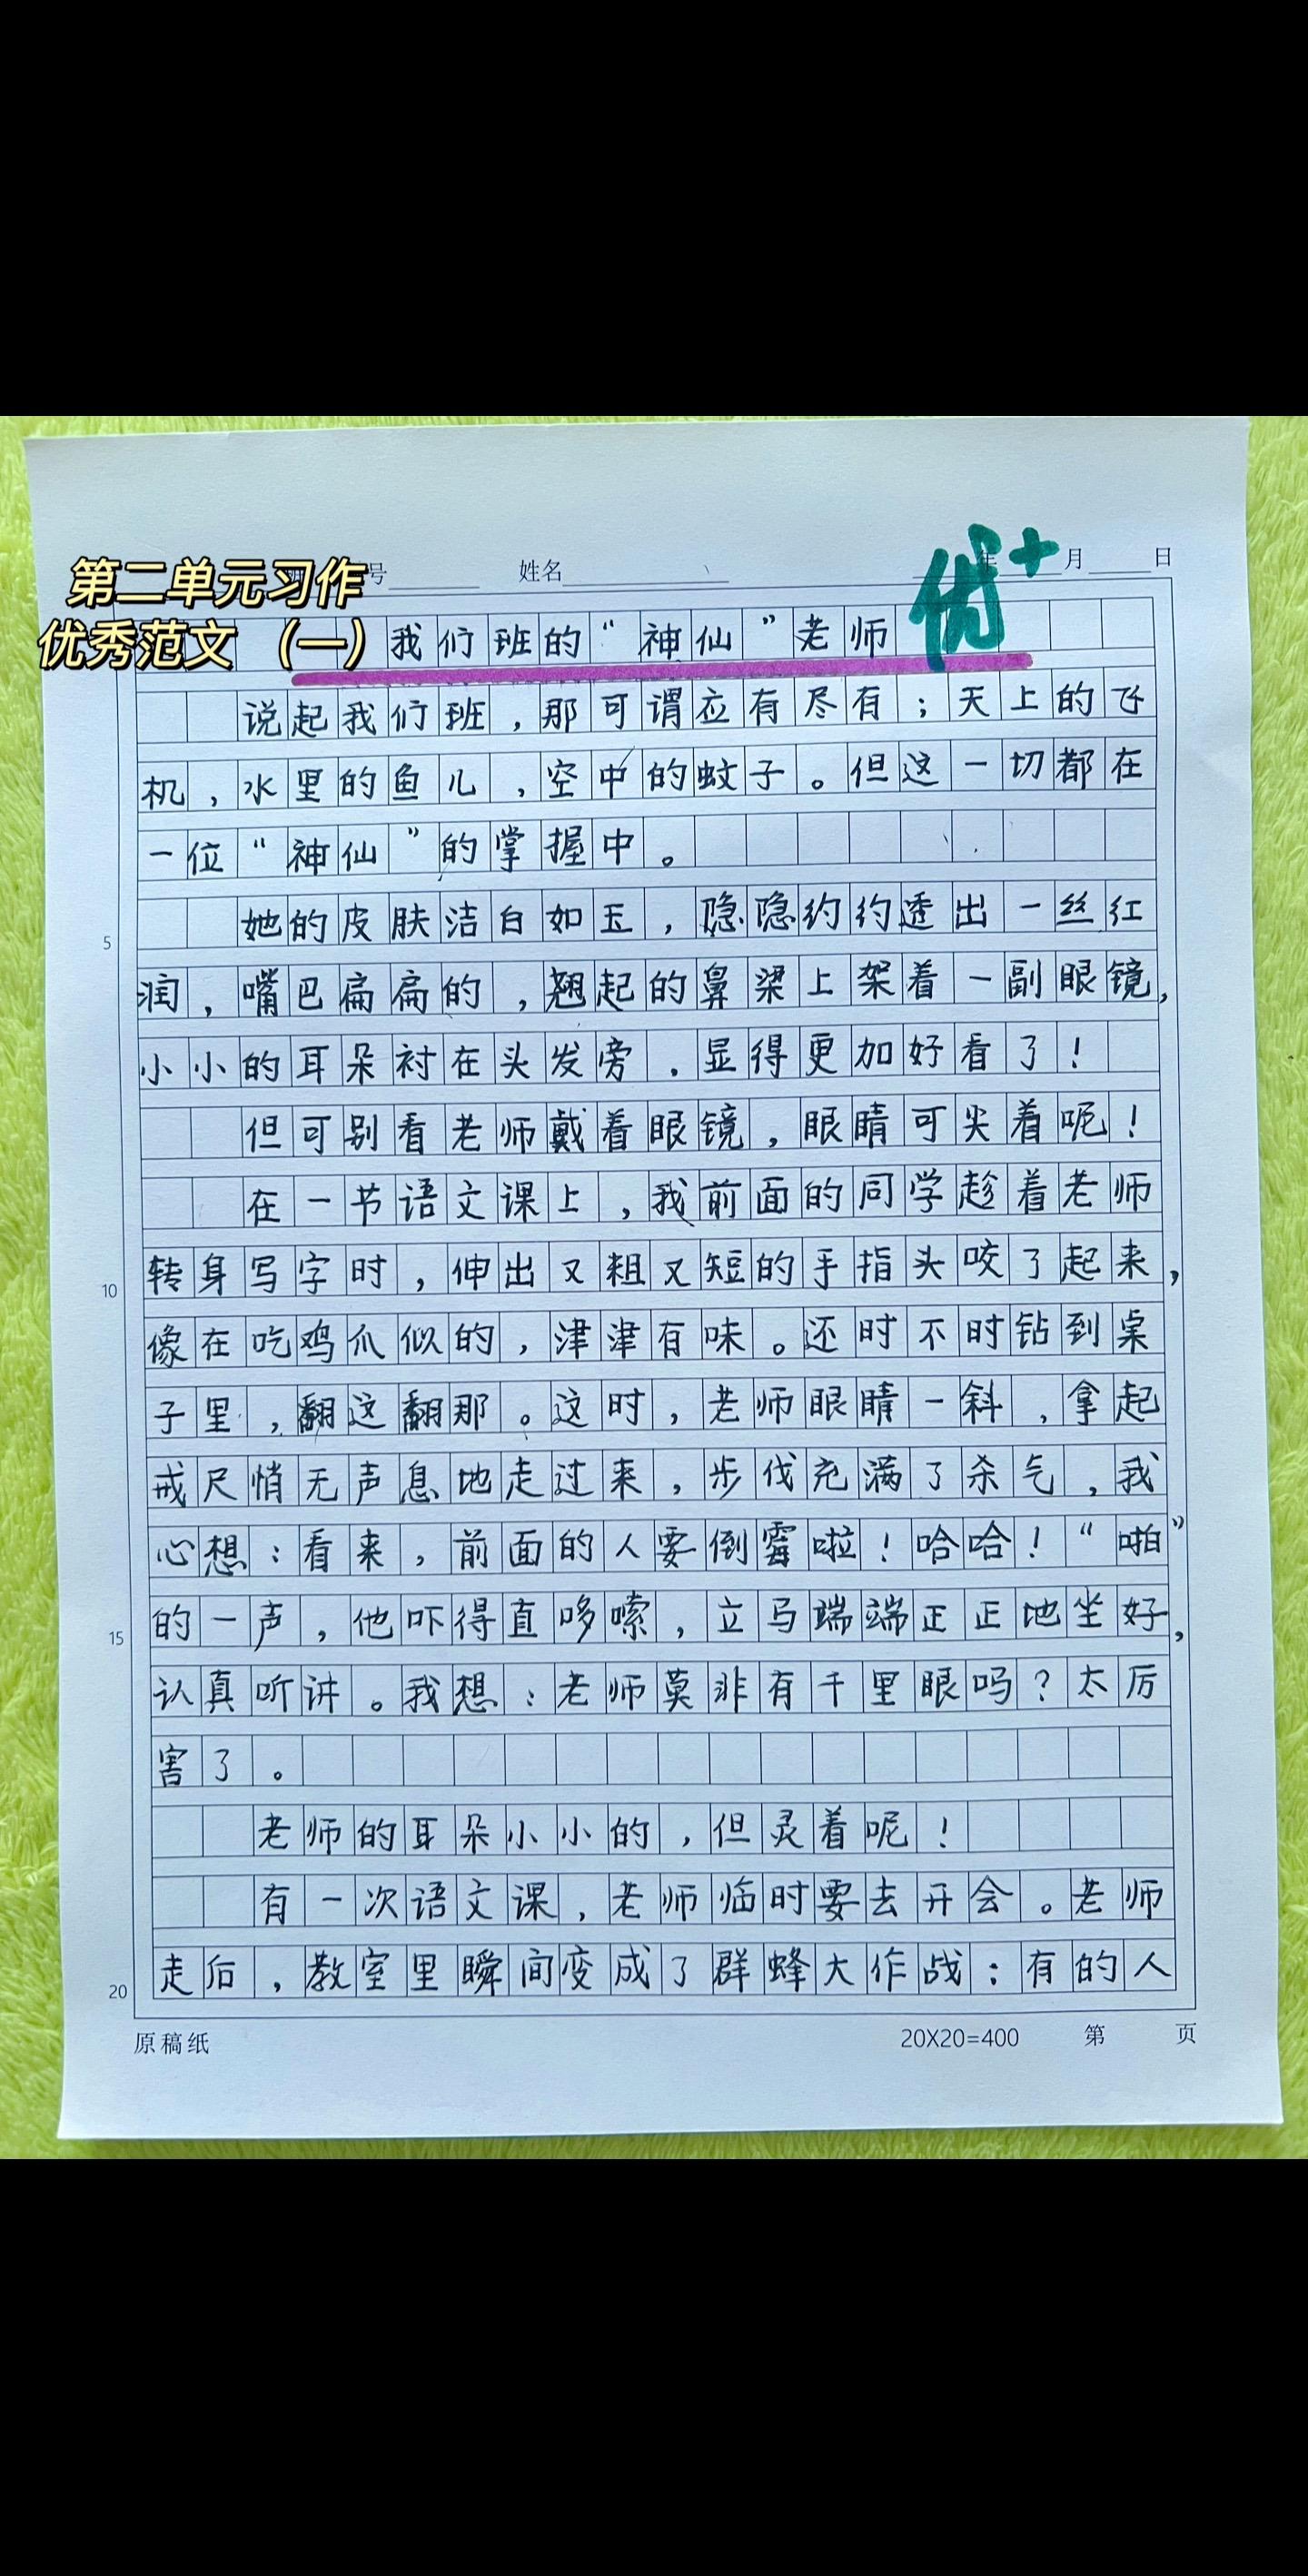 第二单元习作
优秀范文 (一)
号 姓名 年 月 日
优+
我们班的“神仙”老师
说起我们班，那可谓应有尽有；天上的飞
机，水里的鱼儿，空中的蚊子。但这一切都在
一位“神仙”的掌握中。
她的皮肤洁白如玉，隐隐约约透出一丝红
5
润，嘴巴扁扁的，翘起的鼻梁上架着一副眼镜，
小小的耳朵衬在头发旁．显得更加好看了！
但可别看老师戴着眼镜，眼睛可尖着呢！
在一节语文课上，我前面的同学趁着老师
转身写字时，伸出又粗又短的手指头咬了起来，
10
像在吃鸡爪似的，津津有味。还时不时钻到桌
子里，翻这翻那。这时，老师眼睛一斜，拿起
戒尺悄无声息地走过来，步伐充满了杀气，我
心想：看来，前面的人要倒霉啦！哈哈！“啪”
的一声，他吓得直哆嗦，立马端端正正地坐好，
15
认真听讲。我想：老师莫非有千里眼吗？太厉
害了。
老师的耳朵小小的，但灵着呢！
有一次语文课，老师临时要去开会。老师
走后，教室里瞬间变成了群蜂大作战：有的人
20
原稿纸 20X20=400 第 页